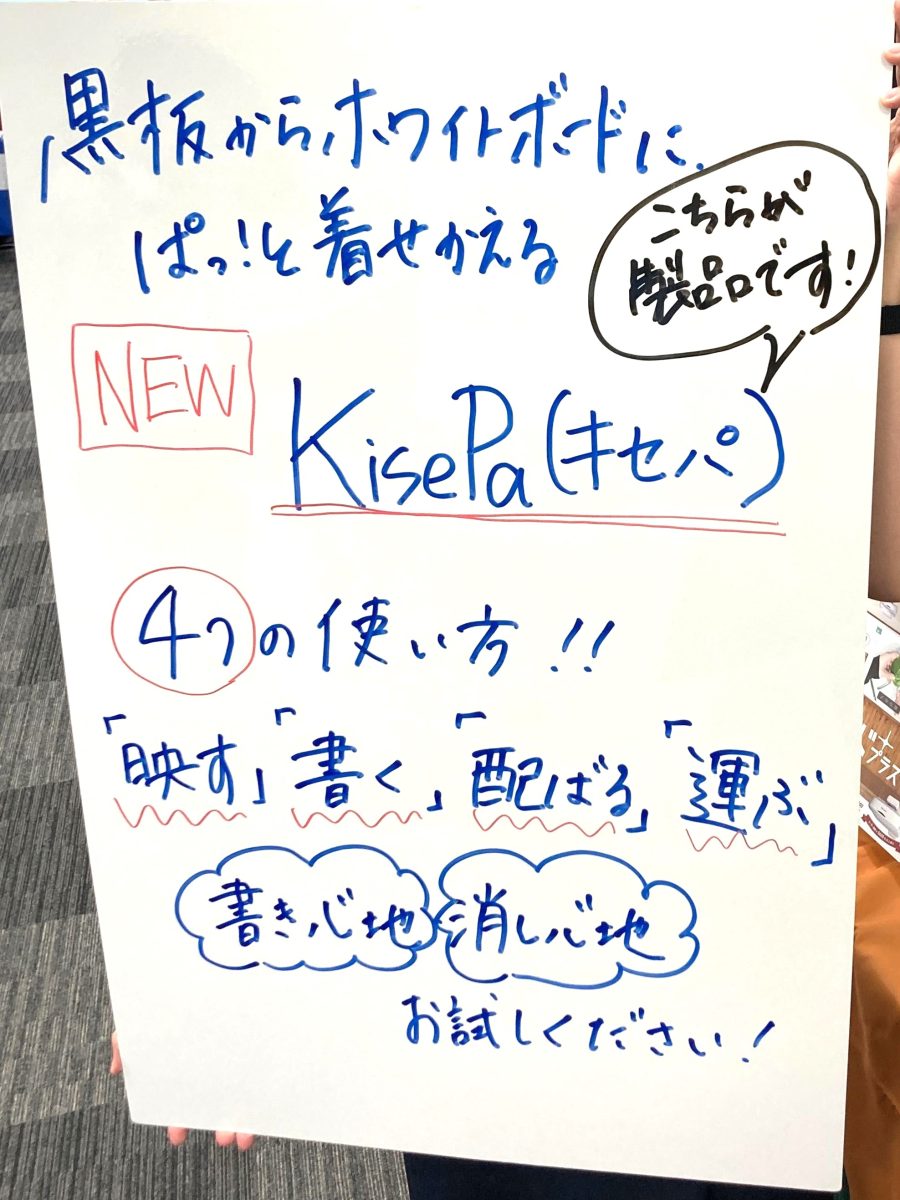 黒板からホワイトボードに
ぱっ!と着せかえる
こちらが
製品です!
NEW
KisePa(キセパ)
4つの使い方!!
「映す」「書く」「配ばる」「運ぶ」
書き心地 消し心地
お試しください!
プラス